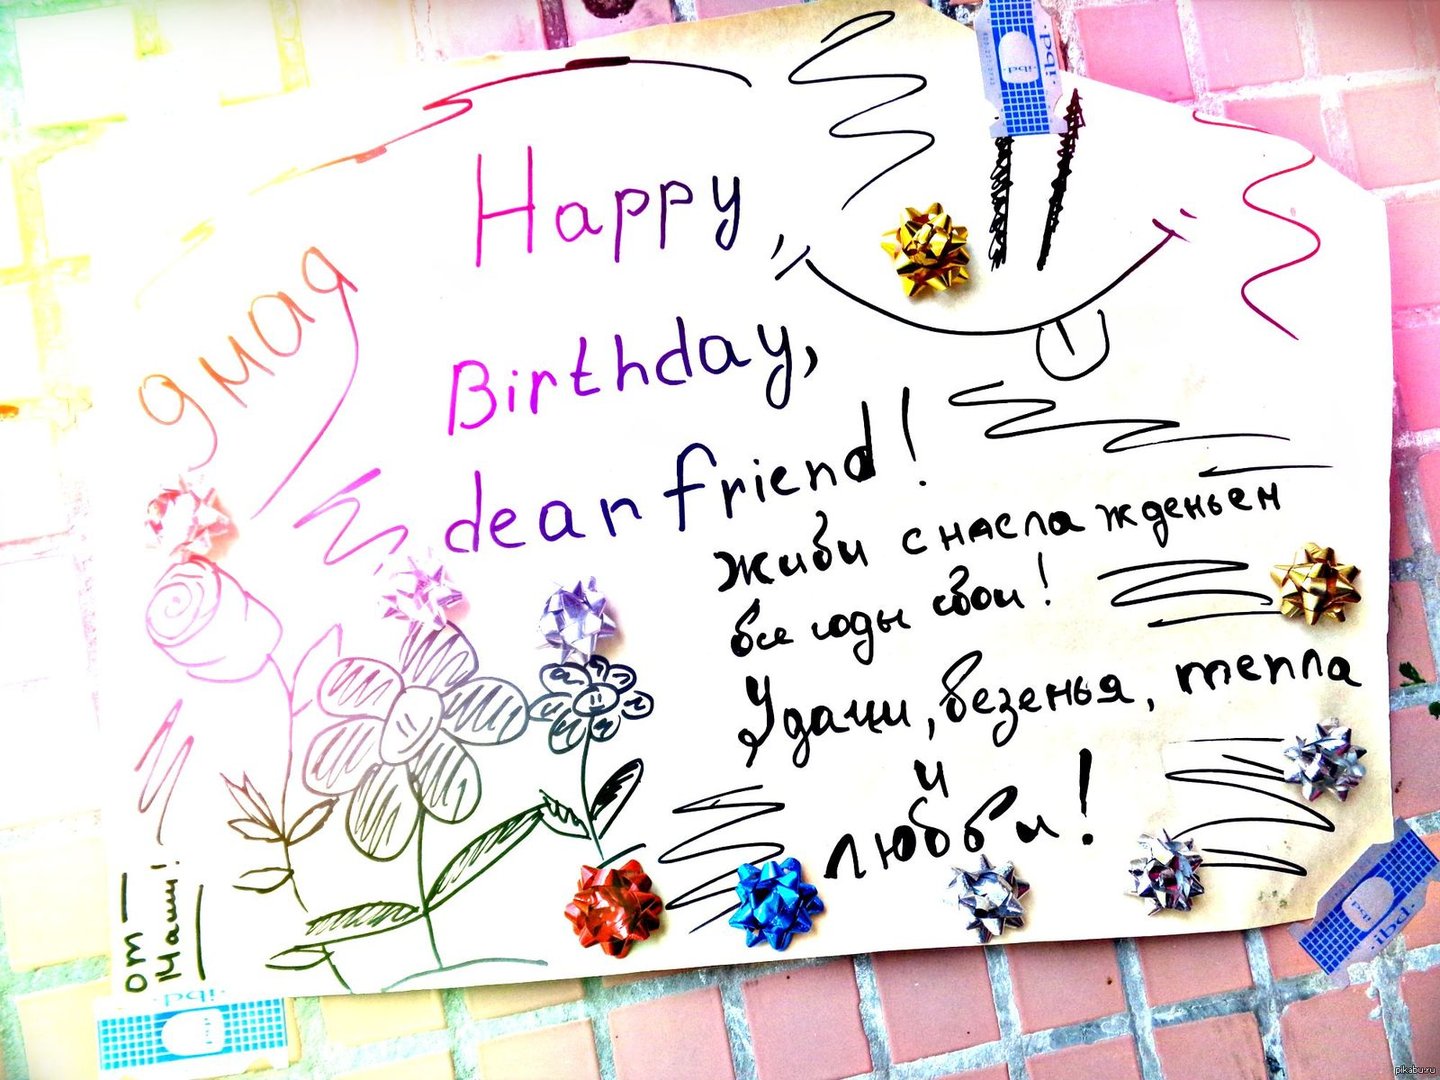 Happy
Birthday,
dear friend!
9 мая
Живи с наслажденьем
все годы свои!
Удачи, везенья, тепла
и
любви!
от
Маши!
ibd
ibd
ibd
ibd
ibd
ibd
pikabu.ru